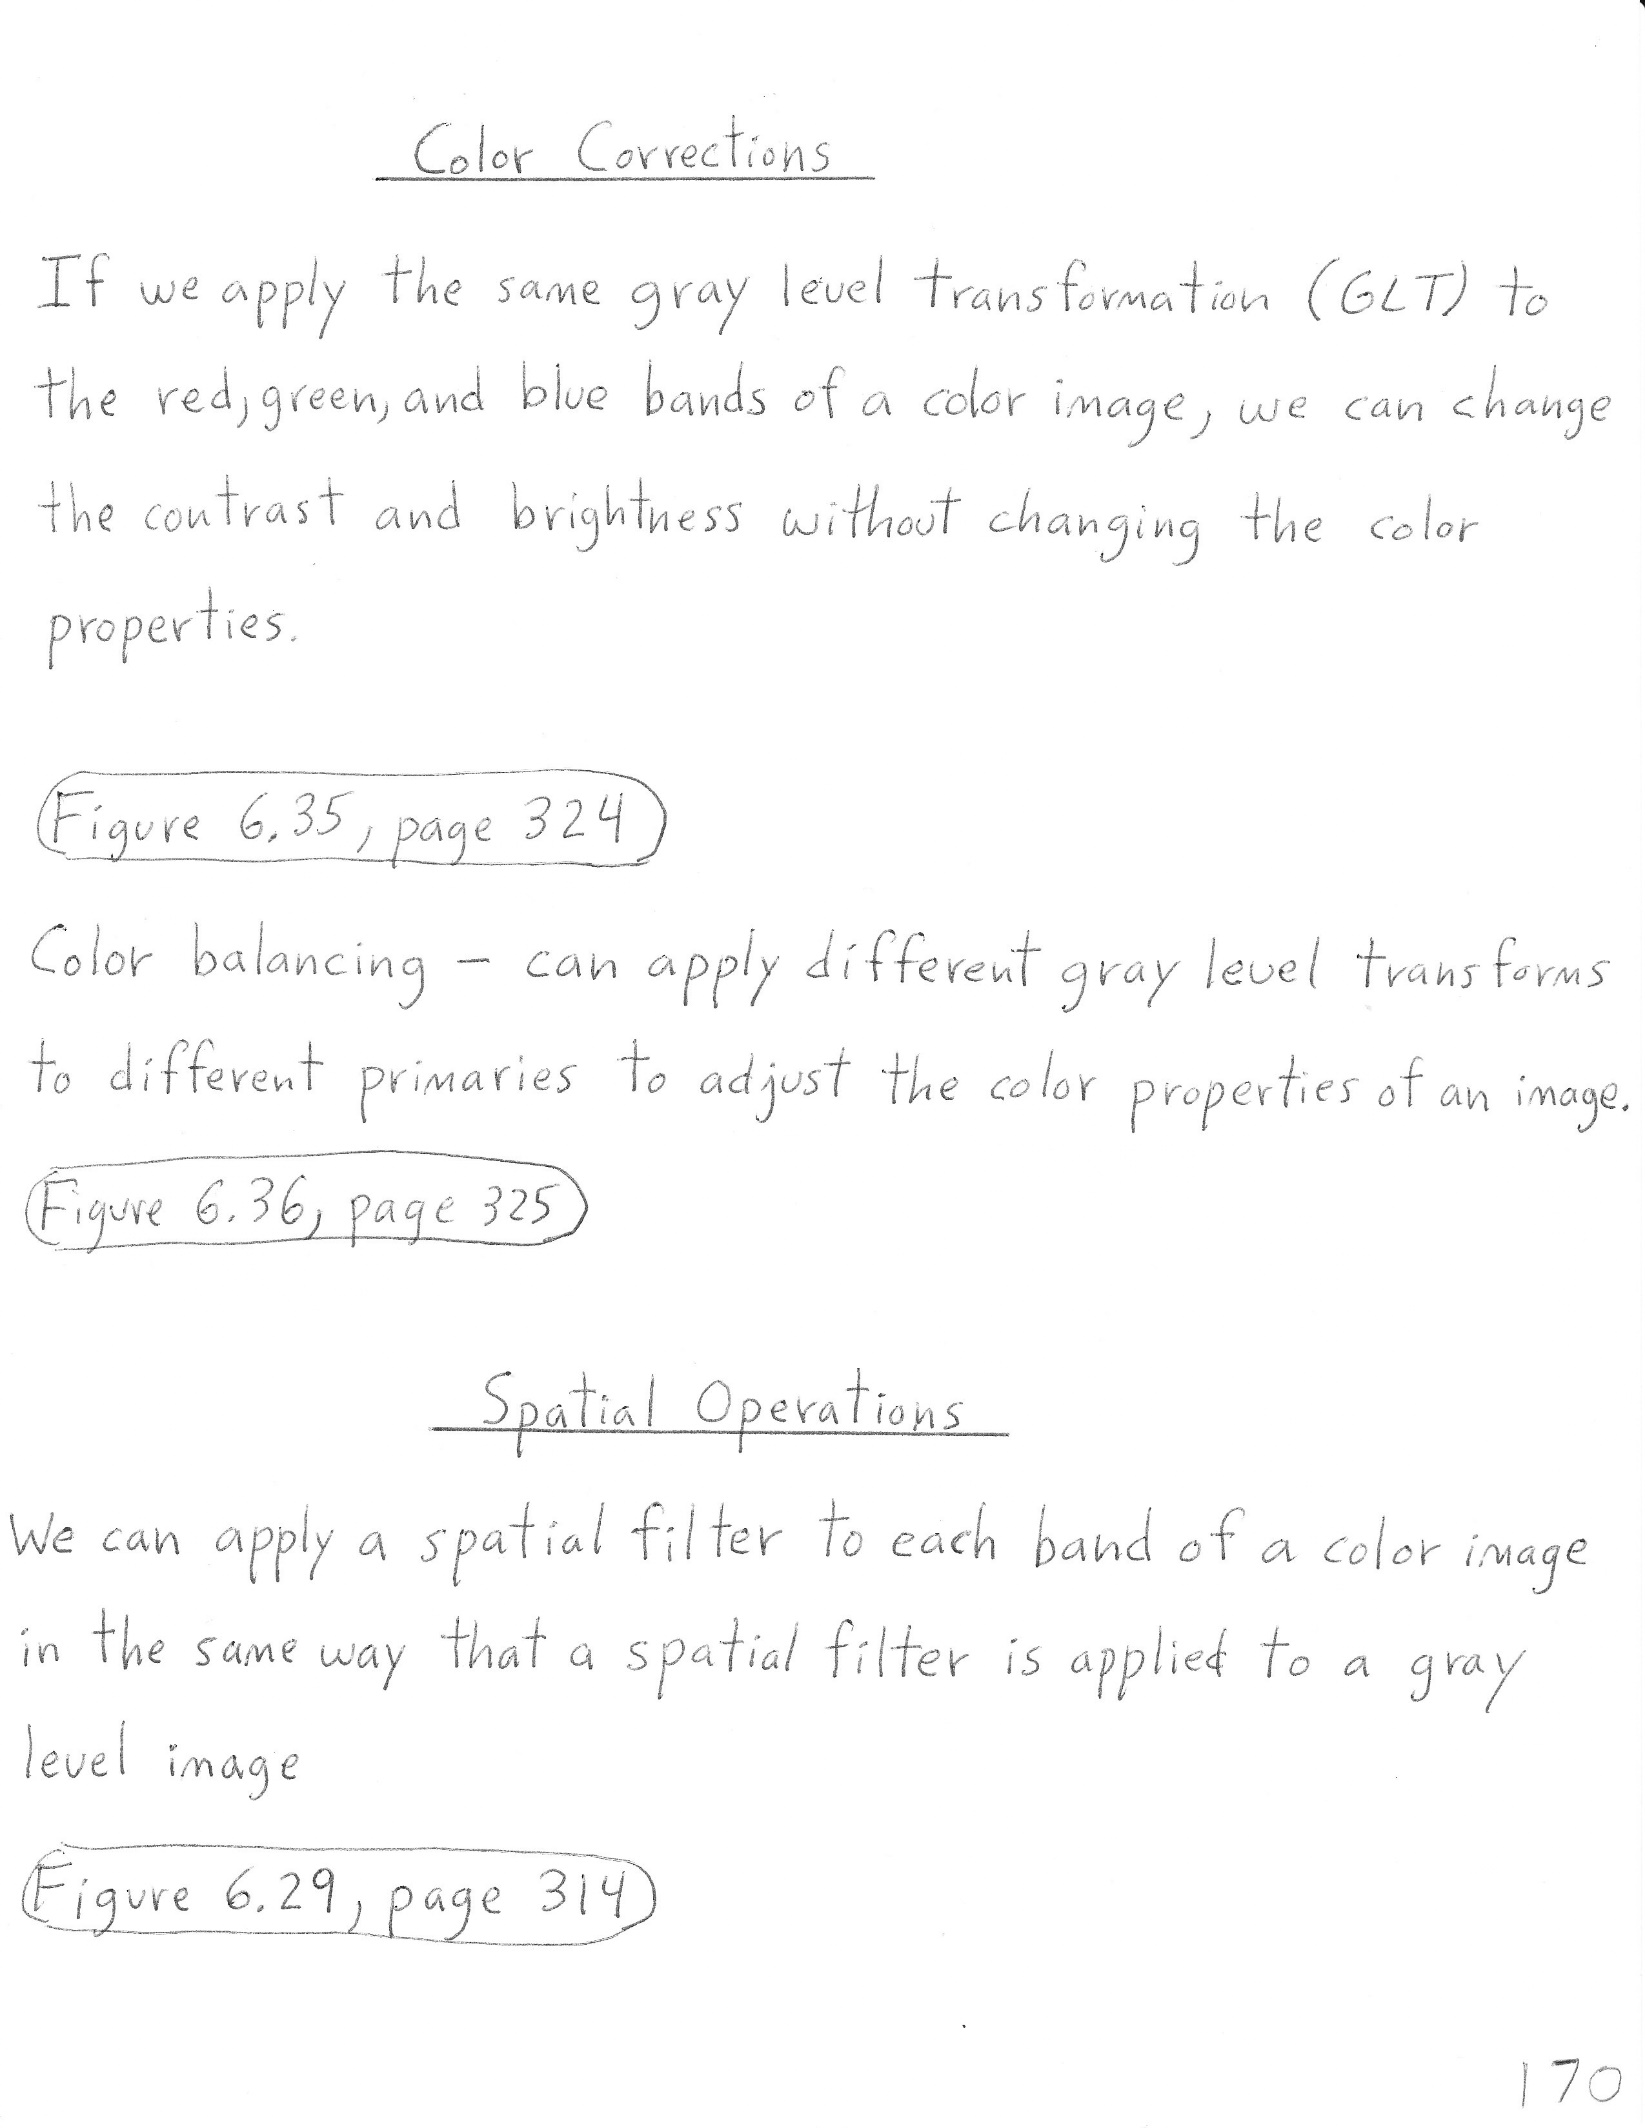 Color Corrections
If we apply the same gray level transformation (GLT) to
the red, green, and blue bands of a color image, we can change
the contrast and brightness without changing the color
properties.
Figure 6.35, page 324
Color balancing - can apply different gray level transforms
to different primaries to adjust the color properties of an image.
Figure 6.36, page 325
Spatial Operations
We can apply a spatial filter to each band of a color image
in the same way that a spatial filter is applied to a gray
level image
Figure 6.29, page 314
170